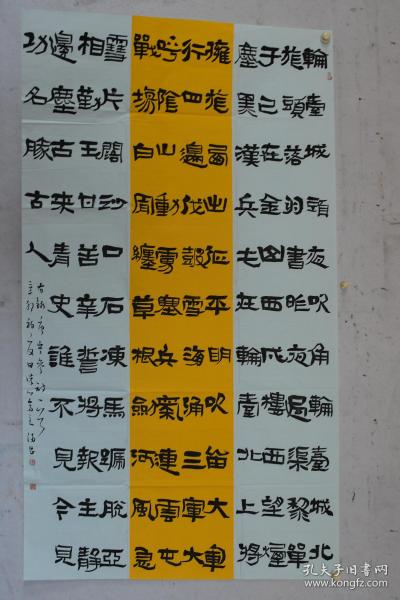 輪臺城頭夜吹角輪臺城北
旄頭落羽書昨夜過渠黎單
于已在金山西戍樓西望煙
塵黑漢兵屯在輪臺北上將
擁旄西出征平明吹笛大軍
行四邊伐鼓雪海涌三軍大
呼陰山動虜塞兵氣連雲屯
戰場白骨纏草根劍河風急
雪片闊沙口石凍馬蹄脫亞
相勤王甘苦辛誓將報主靜
邊塵古來青史誰不見今見
功名勝古人
孔夫子旧书网
www.kongfz.com